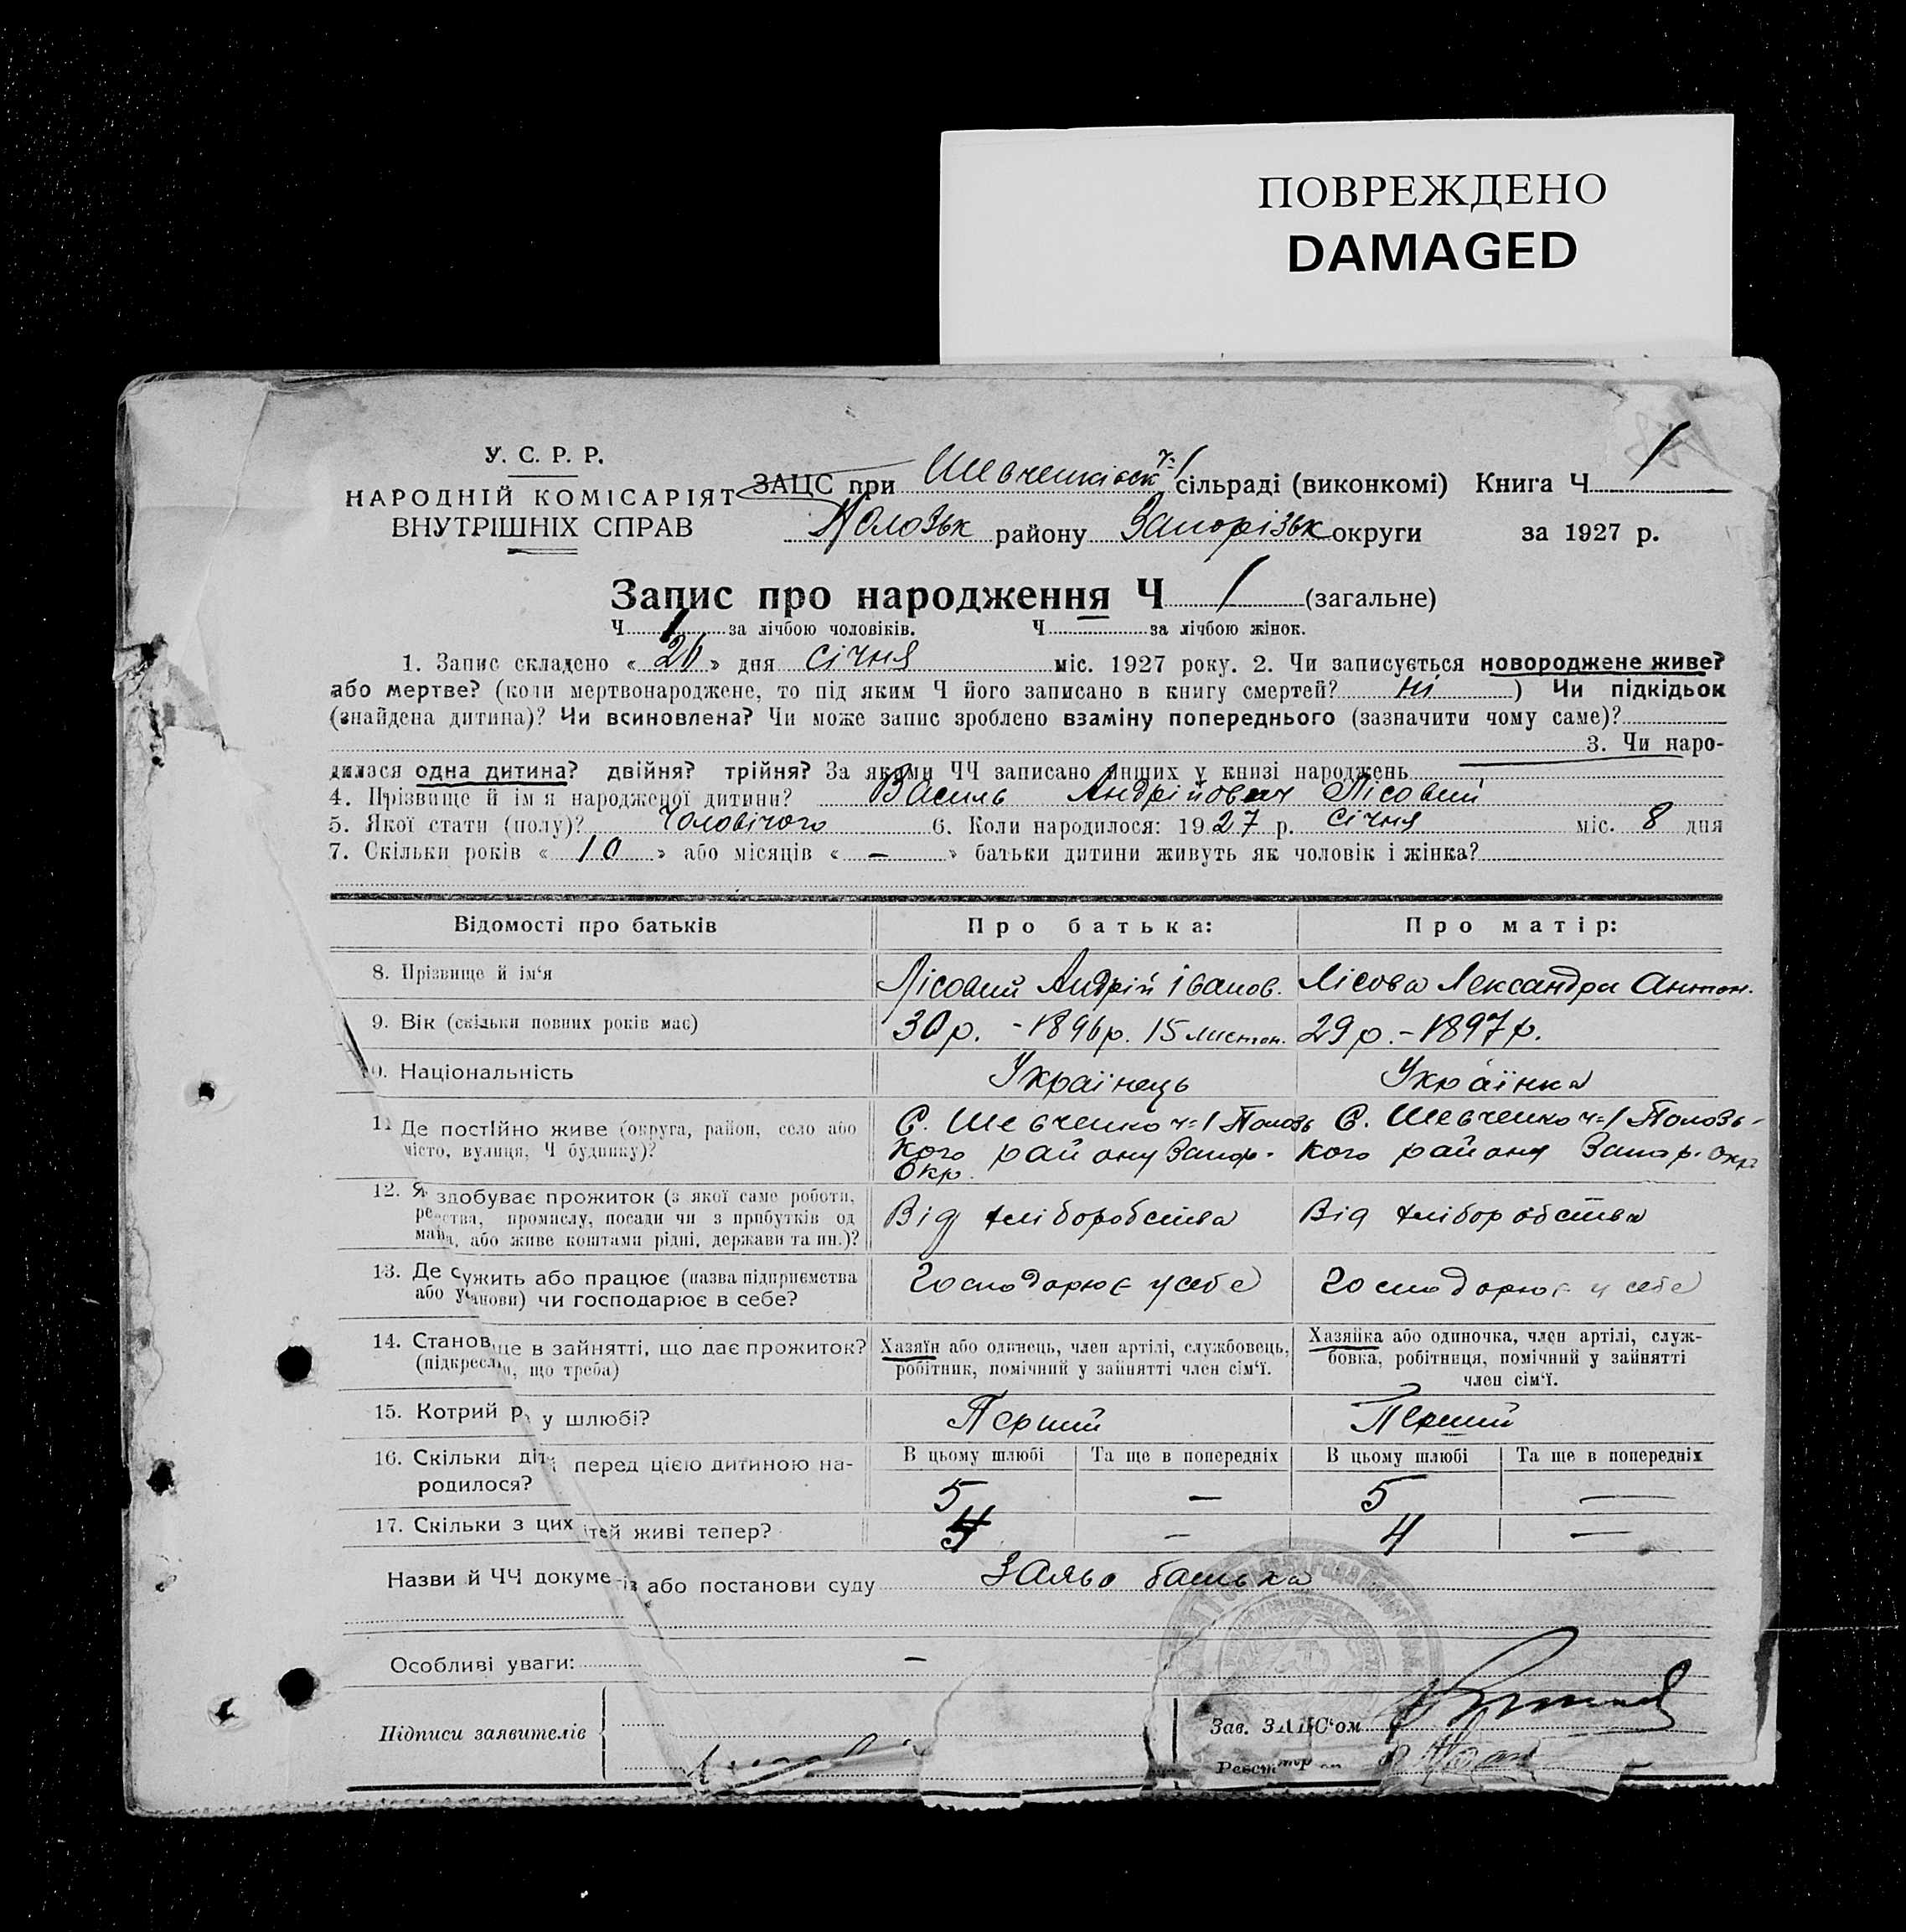 ПОВРЕЖДЕНО
DAMAGED
У. С. Р. Р.
НАРОДНІЙ КОМІСАРІЯТ
ВНУТРІШНІХ СПРАВ
ЗАЦС при Шевченківск ч=1 сільраді (виконкомі) Книга Ч 1
Полозьк району Запорізьк округи за 1927 р.
Запис про народження Ч 1 (загальне)
Ч 1 за лічбою чоловіків. Ч за лічбою жінок.
1. Запис складено « 20 » дня січня міс. 1927 року. 2. Чи записується новороджене живе?
або мертве? (коли мертвонароджене, то під яким Ч його записано в книгу смертей? ні ) Чи підкідьок
(знайдена дитина)? Чи всиновлена? Чи може запис зроблено взаміну попереднього (зазначити чому саме)?
3. Чи наро-
дилася одна дитина? двійня? трійня? За якими ЧЧ записано инших у книзі народжень
4. Прізвище й ім я народженої дитини? Василь Андрійович Лісовий
5. Якої стати (полу)? Чоловічого 6. Коли народилося: 1927 р. січня міс. 8 дня
7. Скільки років « 10 » або місяців « – » батьки дитини живуть як чоловік і жінка?
Відомості про батьків Про батька: Про матір:
8. Прізвище й ім‘я Лісовий Андрій Іванов. Лісова Лександра Антон.
9. Вік (скільки повних років має) 30 р. - 1896 р. 15 листоп. 29 р. - 1897 р.
0. Національність Українець Українка
11 Де постійно живе (округа, район, село або С. Шевченко ч=1 Полозь С. Шевченко ч=1 Полозь-
місто, вулиця, Ч будинку)? кого району Запор. кого району Запор. окр
Окр.
12. Я здобуває прожиток (з якої саме роботи,
ре ства, промислу, посади чи з прибутків од Від хліборобства Від хліборобства
майна, або живе коштами рідні, держави та ин.)?
13. Де служить або працює (назва підприємства Господарює у себе Господарює у себе
або установи) чи господарює в себе?
14. Станов ще в зайнятті, що дає прожиток? Хазяїн або одинець, член артілі, службовець, Хазяйка або одиночка, член артілі, служ-
(підкресли, що треба) робітник, помічний у зайнятті член сім‘ї. бовка, робітниця, помічний у зайнятті
член сім‘ї.
15. Котрий р у шлюбі? Перший Перший
16. Скільки діт перед цією дитиною на- В цьому шлюбі Та ще в попередніх В цьому шлюбі Та ще в попередніх
родилося? 5 – 5 –
17. Скільки з цих ітей живі тепер? 4 – 4 –
Назви й ЧЧ докуме ів або постанови суду Заява батька
Особливі уваги: –
Підписи заявителів Зав. ЗАЦС‘ом